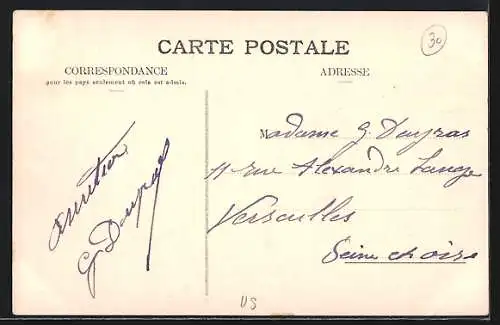 CARTE POSTALE
30
CORRESPONDANCE
pour les pays seulement où cela est admis.
ADRESSE
Amitiés
G Dupas
Madame G. Dupas
11 rue Alexandre Lange
Versailles
Seine et Oise